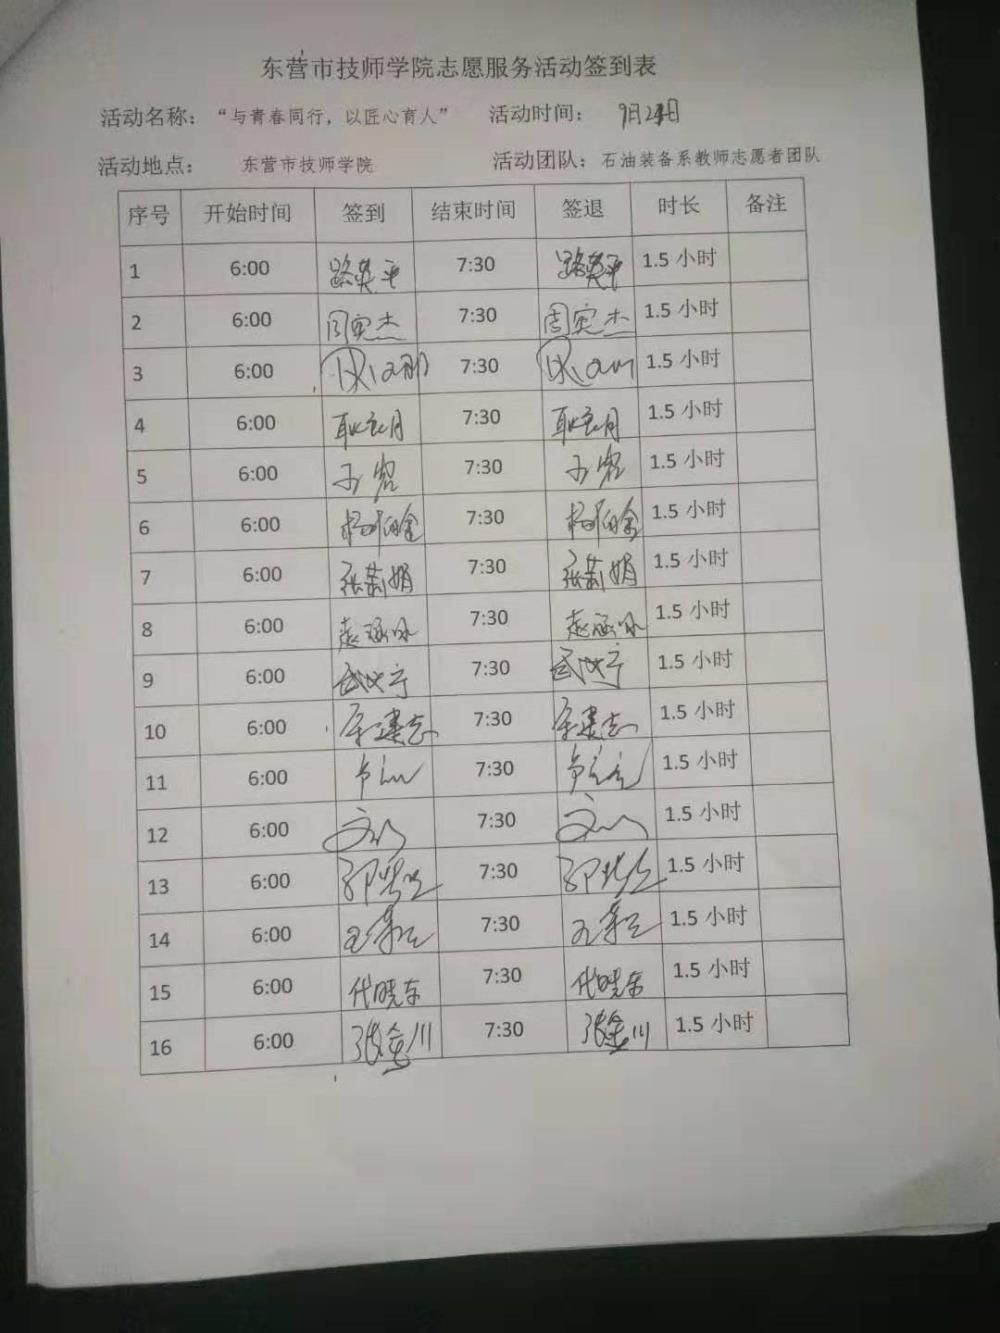 东营市技师学院志愿服务活动签到表
活动名称：“与青春同行，以匠心育人” 活动时间： 9月24日
活动地点： 东营市技师学院 活动团队：石油装备系教师志愿者团队
序号 开始时间 签到 结束时间 签退 时长 备注
1 6:00 路英平 7:30 路英平 1.5 小时
2 6:00 周宪杰 7:30 周宪杰 1.5 小时
3 6:00 7:30 1.5 小时
4 6:00 7:30 1.5 小时
5 6:00 7:30 1.5 小时
6 6:00 7:30 1.5 小时
7 6:00 张莉娟 7:30 张莉娟 1.5 小时
8 6:00 7:30 1.5 小时
9 6:00 7:30 1.5 小时
10 6:00 7:30 1.5 小时
11 6:00 7:30 1.5 小时
12 6:00 7:30 1.5 小时
13 6:00 7:30 1.5 小时
14 6:00 7:30 1.5 小时
15 6:00 代晓东 7:30 代晓东 1.5 小时
16 6:00 张金川 7:30 张金川 1.5 小时